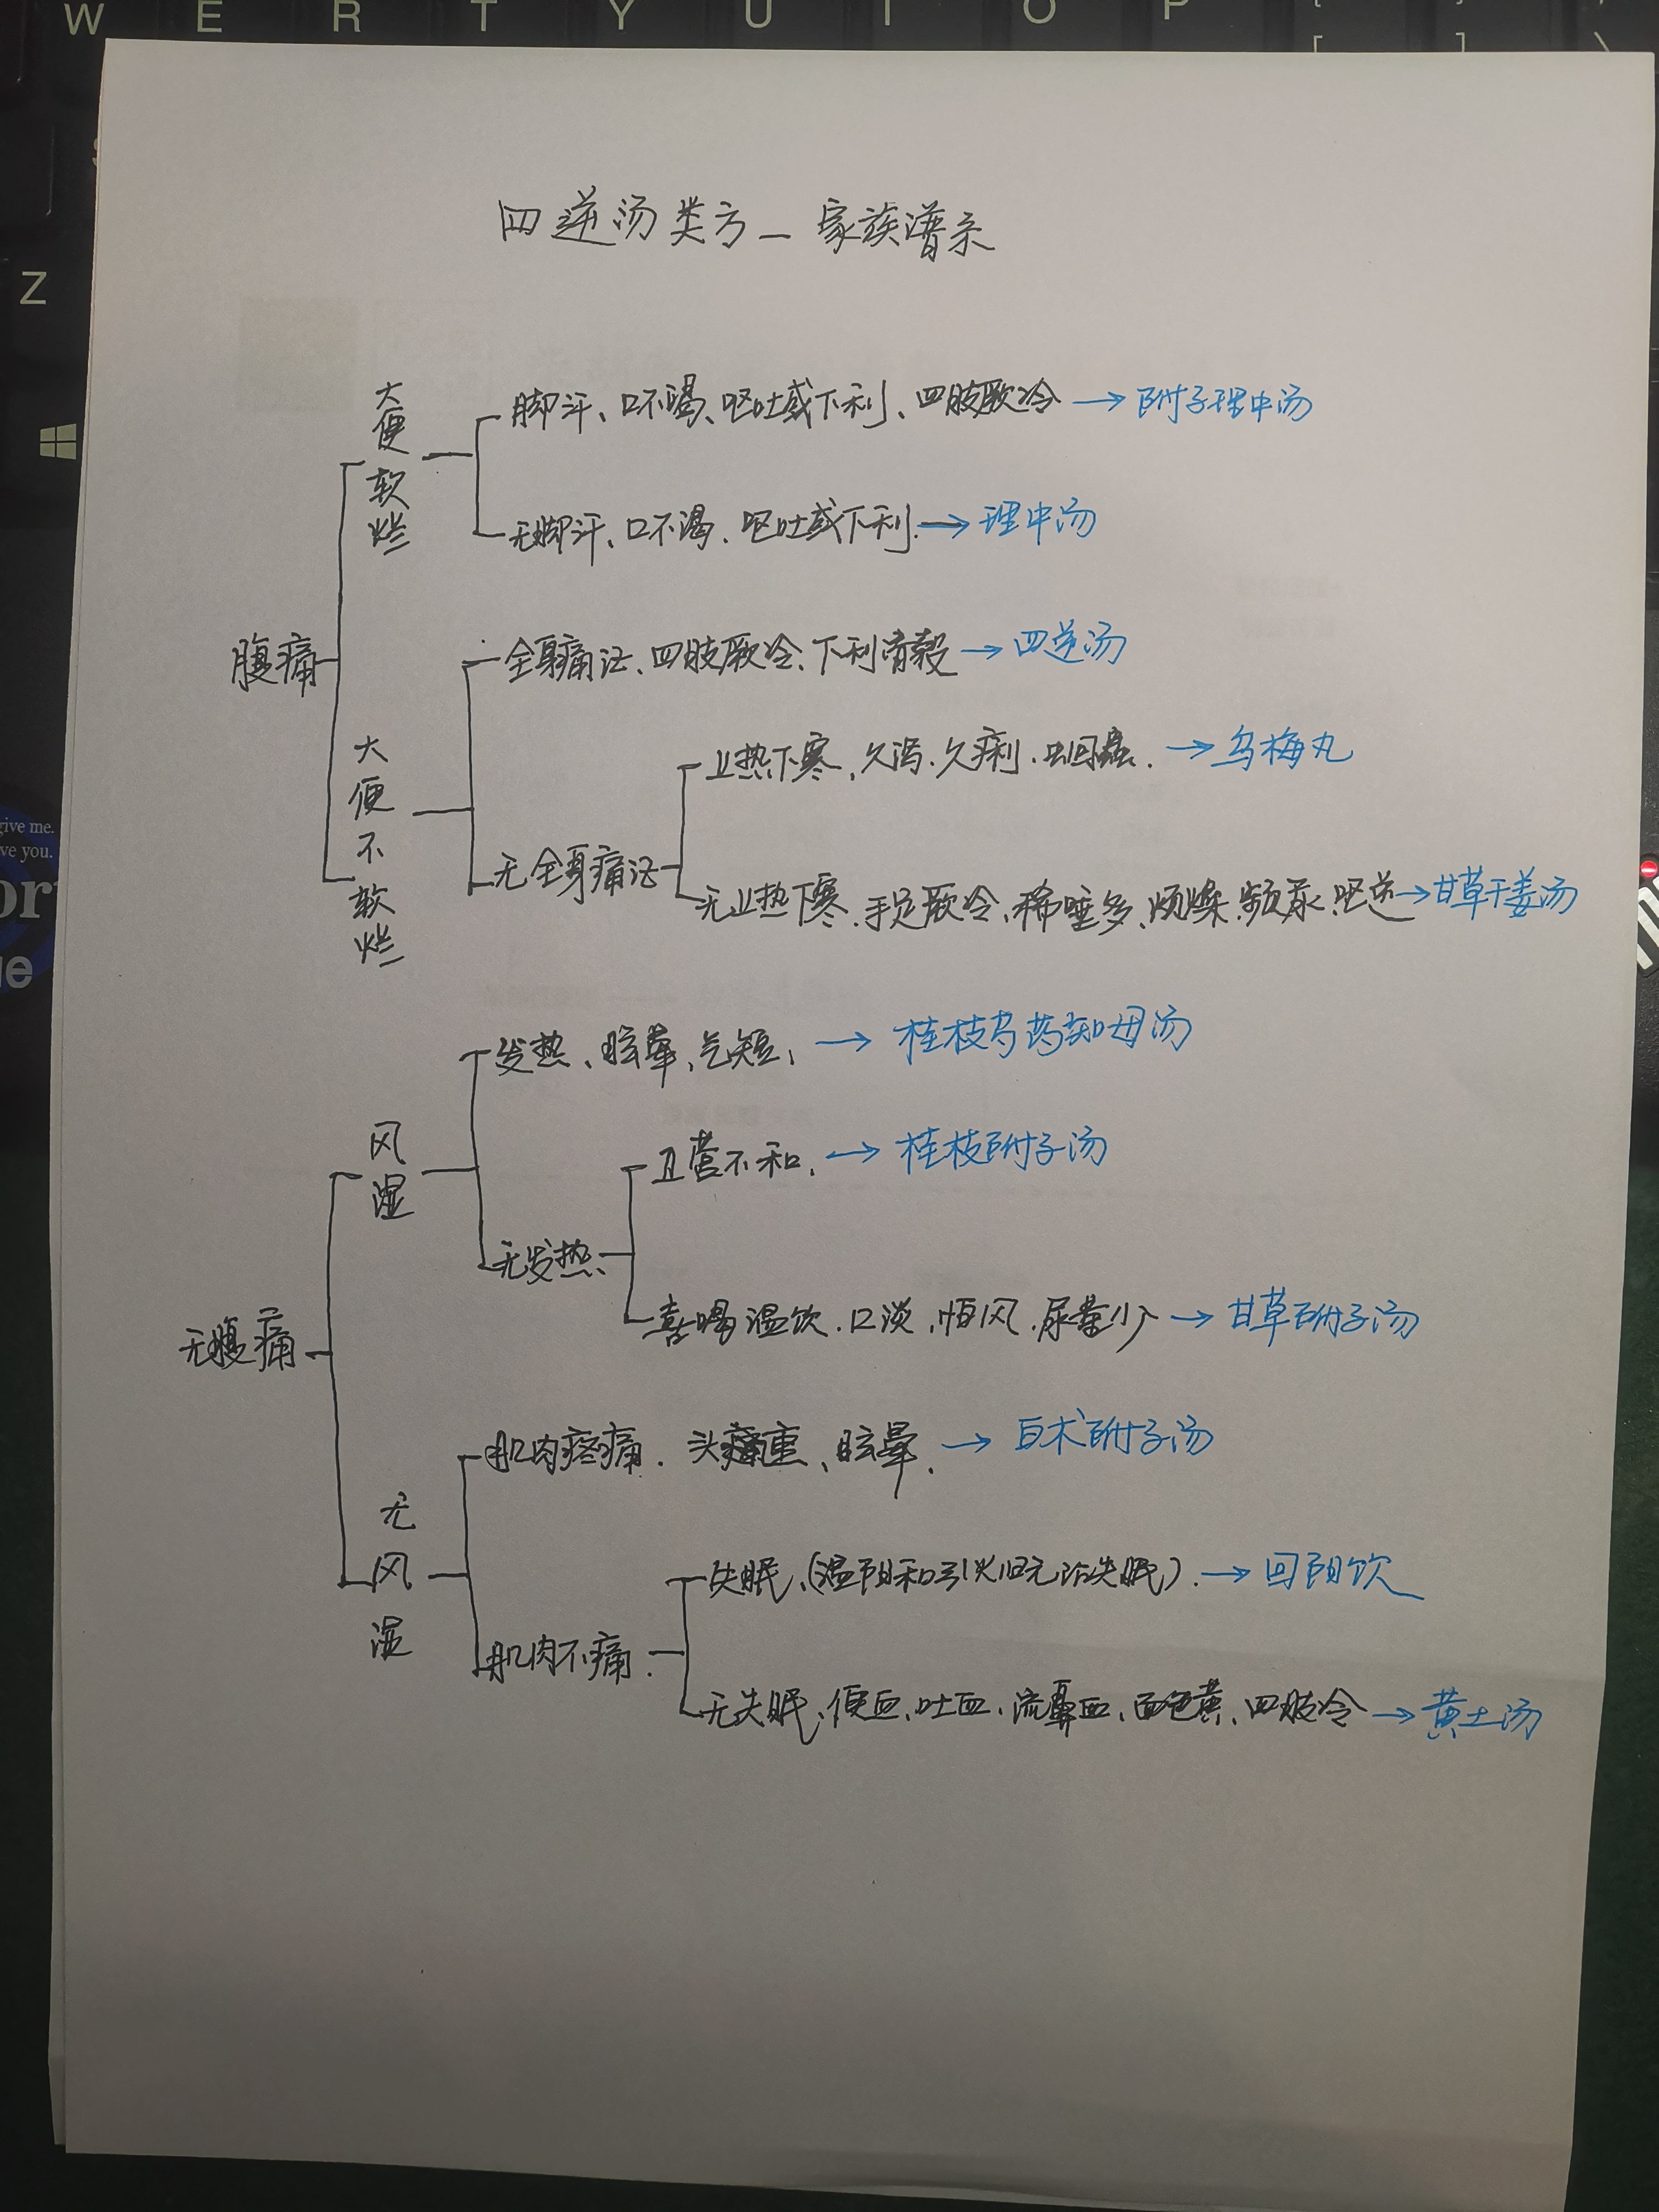 W E R T Y U I O P [ ]
[ ] \
Z
四逆汤类方—家族谱系
大便软烂
脚汗、口不渴、呕吐或下利、四肢厥冷→附子理中汤
无脚汗、口不渴、呕吐或下利.→理中汤
腹痛
全身痛证、四肢厥冷、下利清穀→四逆汤
大便不软烂
上热下寒、久泻、久痢、蛔蟲.→乌梅丸
无全身痛证
无上热下寒、手足厥冷、稀唾多、烦燥、频尿、呕逆→甘草干姜汤
give me.
ve you.
发热、眩晕、气短、→桂枝芍药知母汤
风湿
卫营不和、→桂枝附子汤
无发热
喜喝温饮、口淡、恒风、尿量少→甘草附子汤
无腹痛
肌肉疼痛、头痛重、眩晕、→白术附子汤
无风湿
失眠、(温阳和引火归元治失眠).→回阳饮
肌肉不痛.
无失眠、便血、吐血、流鼻血、面色黄、四肢冷→黄土汤